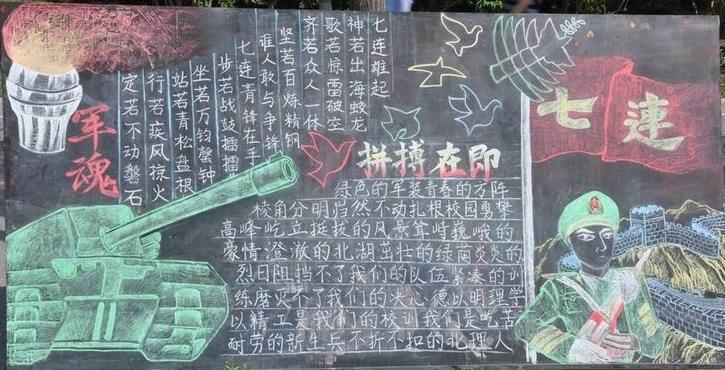 军魂
七连雄起
神若出海蛟龙
歌若惊雷破空
齐若众人一体
坚若百炼精钢
谁人敢与争锋
七连青锋在手
步若战鼓擂擂
坐若万钧磬钟
站若青松盘根
行若疾风掠火
定若不动磐石
拼搏在即
绿色的军装青春的方阵
棱角分明岿然不动扎根校园勇攀
高峰屹立挺拔的风景耸峙巍峨的
豪情澄澈的北湖茁壮的绿荫炎炎的
烈日阻挡不了我们的队伍紧凑的训
练磨灭不了我们的决心德以明理学
以精工是我们的校训我们是吃苦
耐劳的新生兵不折不扣的北理人
七連